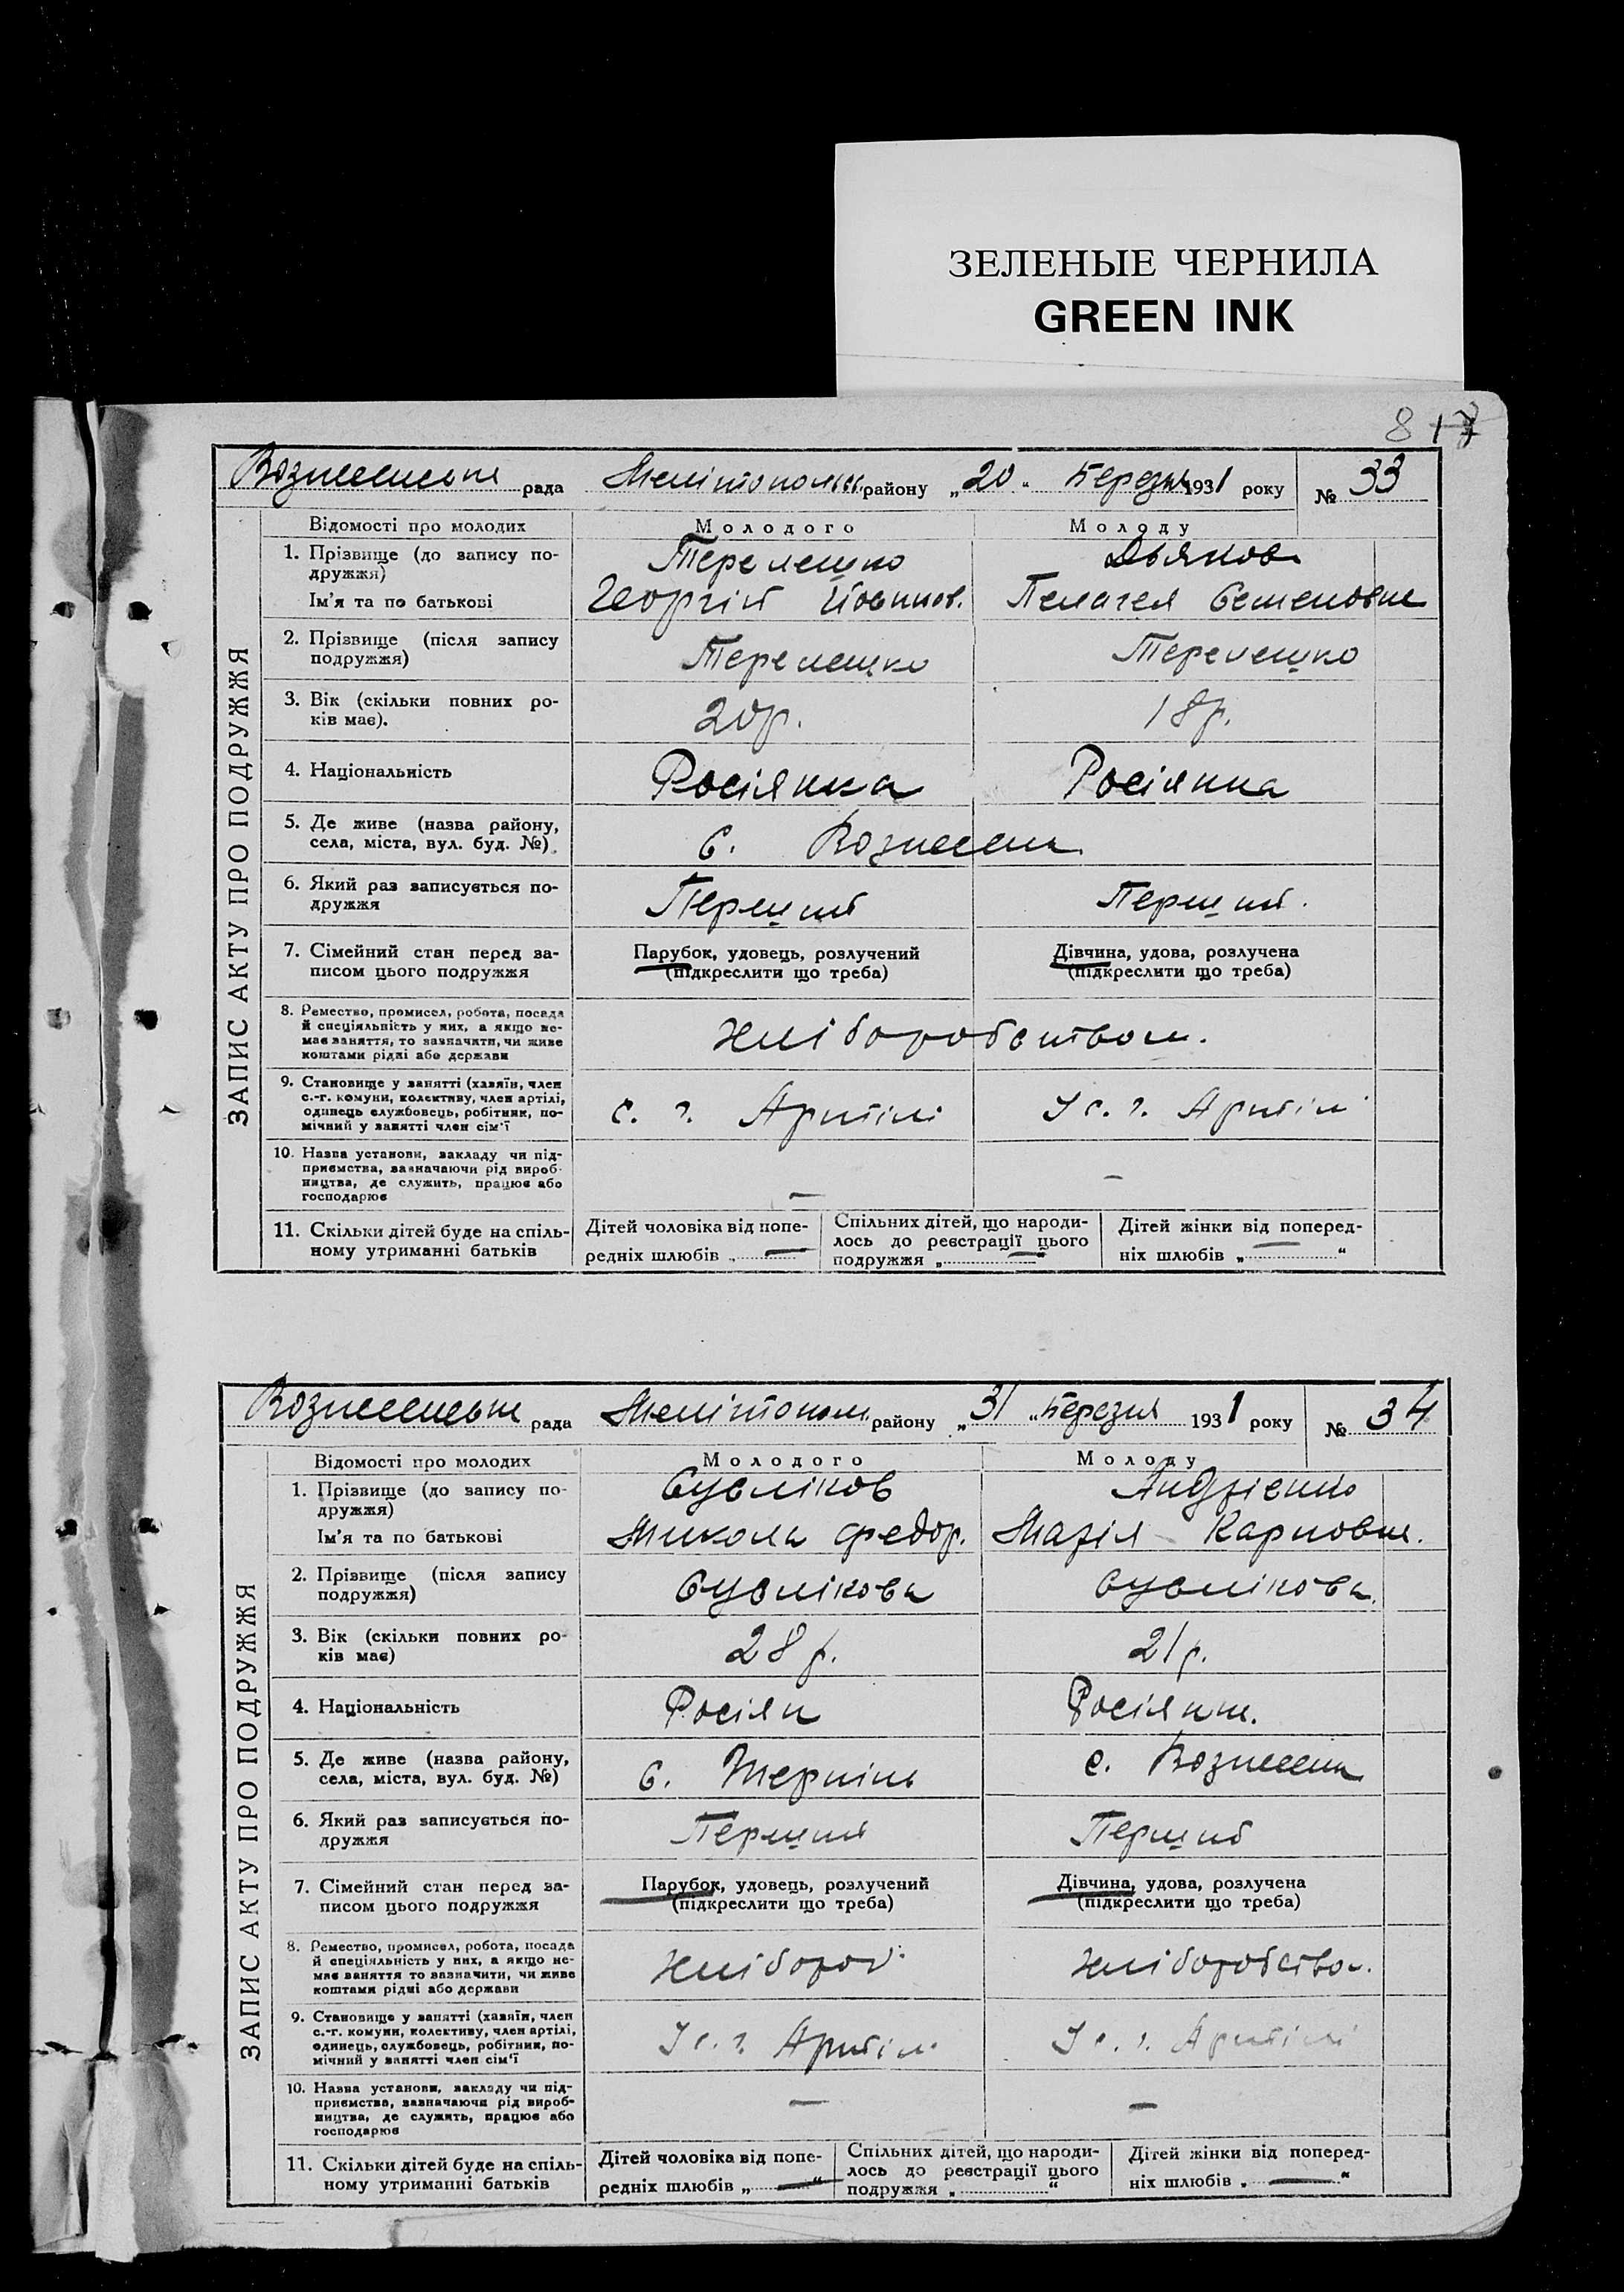 ЗЕЛЕНЫЕ ЧЕРНИЛА
GREEN INK
8
Вознесенська рада Мелітопольськ. району „20“ Березня 1931 року № 33
ЗАПИС АКТУ ПРО ПОДРУЖЖЯ
Відомості про молодих Молодого Молоду
1. Прізвище (до запису по-
дружжя) Терлецко Дьякова
Ім'я та по батькові Георгій Пелагея Семеновна
2. Прізвище (після запису
подружжя)
3. Вік (скільки повних ро-
ків має). 20р. 18р.
4. Національність Росіянка Росіянка
5. Де живе (назва району,
села, міста, вул. буд. №) С. Вознесен
6. Який раз записується по-
дружжя Перший Перший.
7. Сімейний стан перед за-
писом цього подружжя
Парубок, удовець, розлучений
(підкреслити що треба)
Дівчина, удова, розлучена
(підкреслити що треба)
8. Ремество, промисел, робота, посада
й спеціяльність у них, а якщо не-
має заняття, то зазначити, чи живе
коштами рідні або держави
Хліборобством.
9. Становище у занятті (хазяїн, член
с.-г. комуни, колективу, член артілі,
одинець службовець, робітник, по-
мічний у занятті член сім'ї
с. г. Артілі У с. г. Артілі
10. Назва установи, закладу чи під-
приємства, зазначаючи рід вироб-
ництва, де служить, працює або
господарює
— —
11. Скільки дітей буде на спіль-
ному утриманні батьків
Дітей чоловіка від попе-
редніх шлюбів „ —
Спільних дітей, що народи-
лось до реєстрації цього
подружжя „ — “
Дітей жінки від поперед-
ніх шлюбів „ — “
Вознесенська рада Мелітополь району „31“ Березня 1931 року № 34
ЗАПИС АКТУ ПРО ПОДРУЖЖЯ
Відомості про молодих Молодого Молоду
1. Прізвище (до запису по-
дружжя) Сусліков Андрієнко
Ім'я та по батькові Микола Федор. Марія Карповна.
2. Прізвище (після запису
подружжя) Суслікова Суслікова.
3. Вік (скільки повних ро-
ків має) 28р. 21р.
4. Національність Росіян Росіянка.
5. Де живе (назва району,
села, міста, вул. буд. №) С. Терпіньє с. Вознесен
6. Який раз записується по-
дружжя Перший Перший
7. Сімейний стан перед за-
писом цього подружжя
Парубок, удовець, розлучений
(підкреслити що треба)
Дівчина, удова, розлучена
(підкреслити що треба)
8. Ремество, промисел, робота, посада
й спеціяльність у них, а якщо не-
має заняття то зазначити, чи живе
коштами рідні або держави
Хлібороб. Хліборобство.
9. Становище у занятті (хазяїн, член
с.-г. комуни, колективу, член артілі,
одинець, службовець, робітник, по-
мічний у занятті член сім'ї
У с. г. Артілі У с. г. Артілі
10. Назва установи, закладу чи під-
приємства, зазначаючи рід вироб-
ництва, де служить, працює або
господарює
— —
11. Скільки дітей буде на спіль-
ному утриманні батьків
Дітей чоловіка від попе-
редніх шлюбів „ — “
Спільних дітей, що народи-
лось до реєстрації цього
подружжя „ “
Дітей жінки від поперед-
ніх шлюбів „ — “